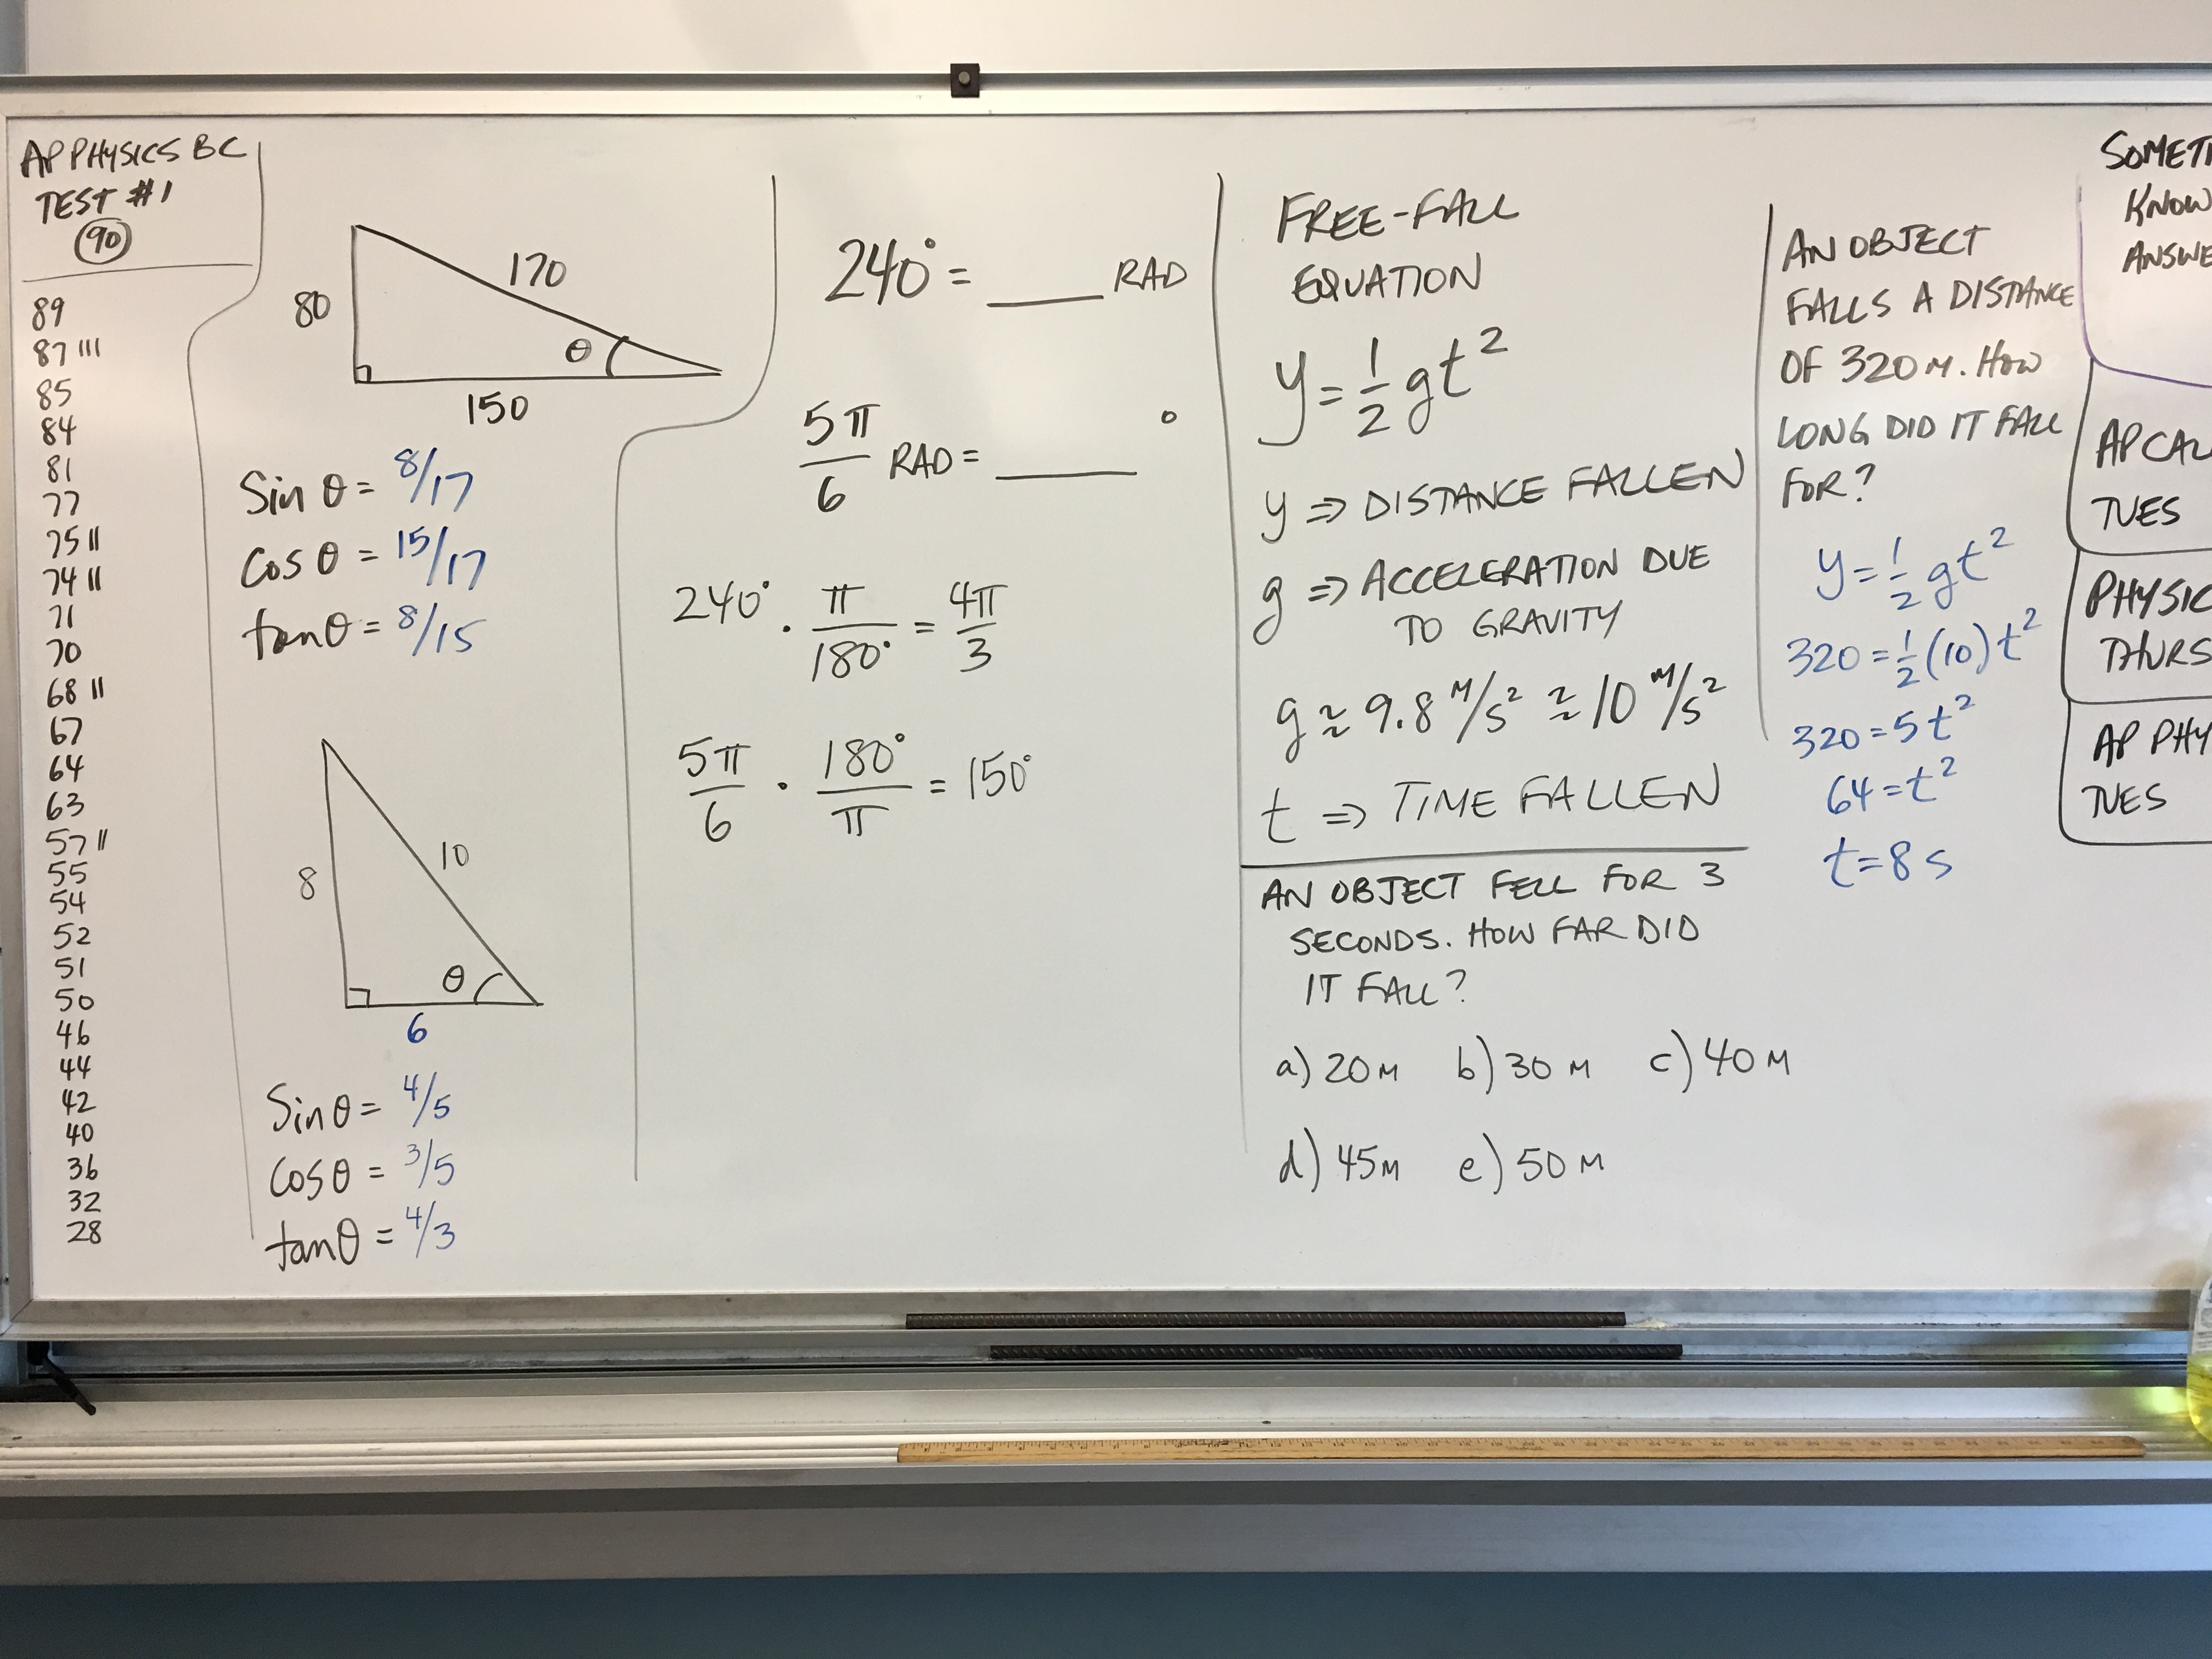 AP PHYSICS BC
TEST #1
90
89
87 III
85
84
81
77
75 II
74 II
71
70
68 II
67
64
63
57 II
55
54
52
51
50
46
44
42
40
36
32
28
80
170
θ
150
Sin θ = 8/17
Cos θ = 15/17
tan θ = 8/15
8
10
θ
6
Sin θ = 4/5
Cos θ = 3/5
tan θ = 4/3
240° = ____ RAD
5π/6 RAD = ____ °
240° · π/180° = 4π/3
5π/6 · 180°/π = 150°
FREE-FALL
EQUATION
y = 1/2 gt²
y ⇒ DISTANCE FALLEN
g ⇒ ACCELERATION DUE
TO GRAVITY
g ≈ 9.8 M/S² ≈ 10 M/S²
t ⇒ TIME FALLEN
AN OBJECT FELL FOR 3
SECONDS. HOW FAR DID
IT FALL?
a) 20 M b) 30 M c) 40 M
d) 45 M e) 50 M
AN OBJECT
FALLS A DISTANCE
OF 320 M. HOW
LONG DID IT FALL
FOR?
y = 1/2 gt²
320 = 1/2 (10) t²
320 = 5t²
64 = t²
t = 8 s
KNOW
AP CAL
TUES
PHYSIC
THURS
AP PHY
TUES